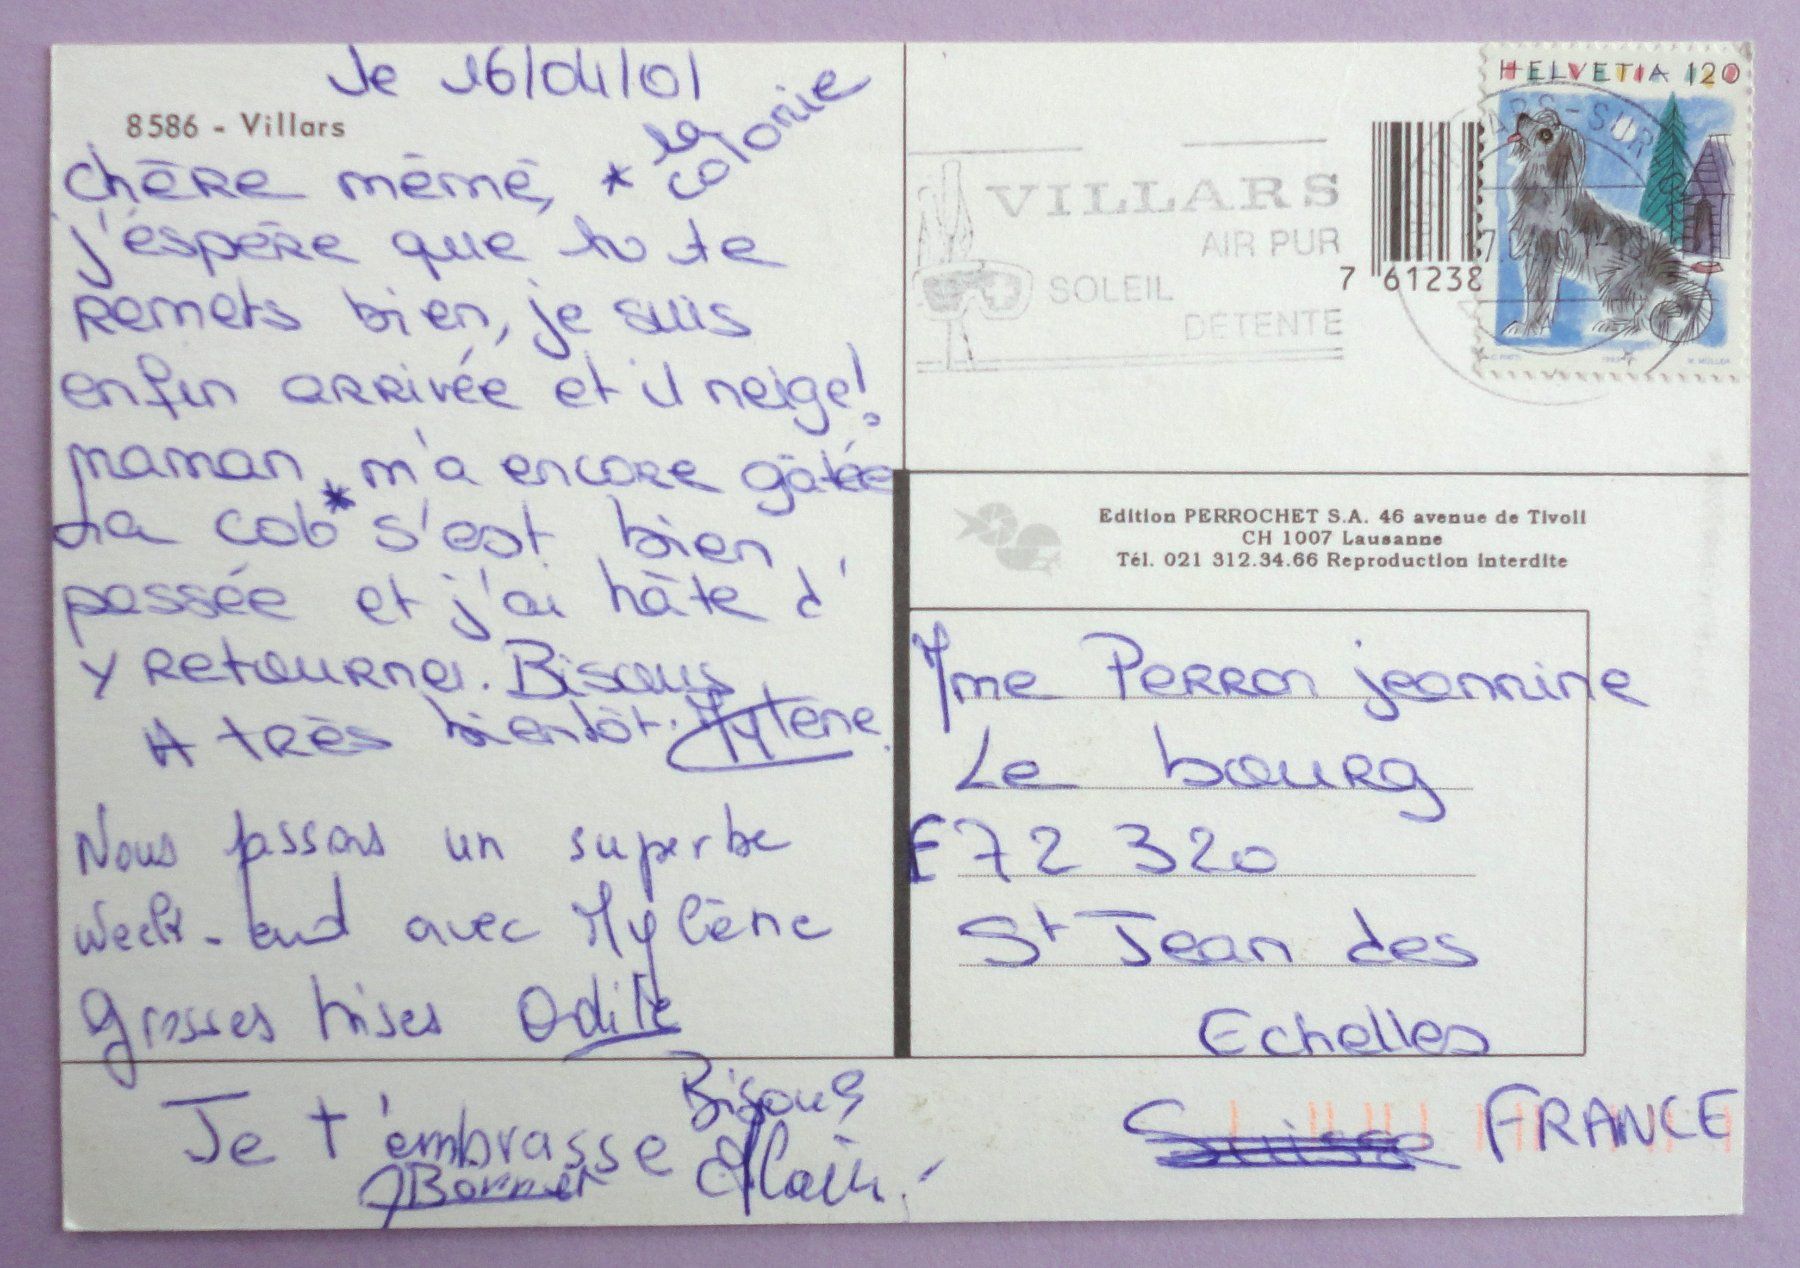 Je 16/04/01
8586 - Villars
* la
colonie
chère mémé,
j'espère que tu te
remets bien, je suis
enfin arrivée et il neige!
maman m'a encore gâtée
La cob* s'est bien
passée et j'ai hâte d'
y retourner. Bisous
A très bientôt. Mylène.
Nous passons un superbe
week-end avec Mylène
grosses bises Odile
Je t'embrasse
Bisous
Alain.
HELVETIA 120
VILLARS
AIR PUR
SOLEIL
DÉTENTE
7 61238
Edition PERROCHET S.A. 46 avenue de Tivoli
CH 1007 Lausanne
Tél. 021 312.34.66 Reproduction interdite
Mme Perron jeannine
Le bourg
F 72 320
St Jean des
Echelles
Suisse FRANCE